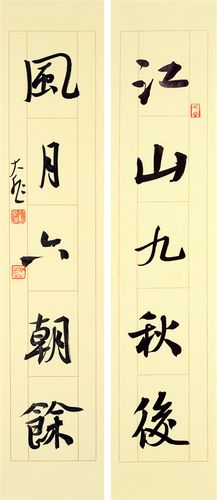 江山九秋後
風月六朝餘